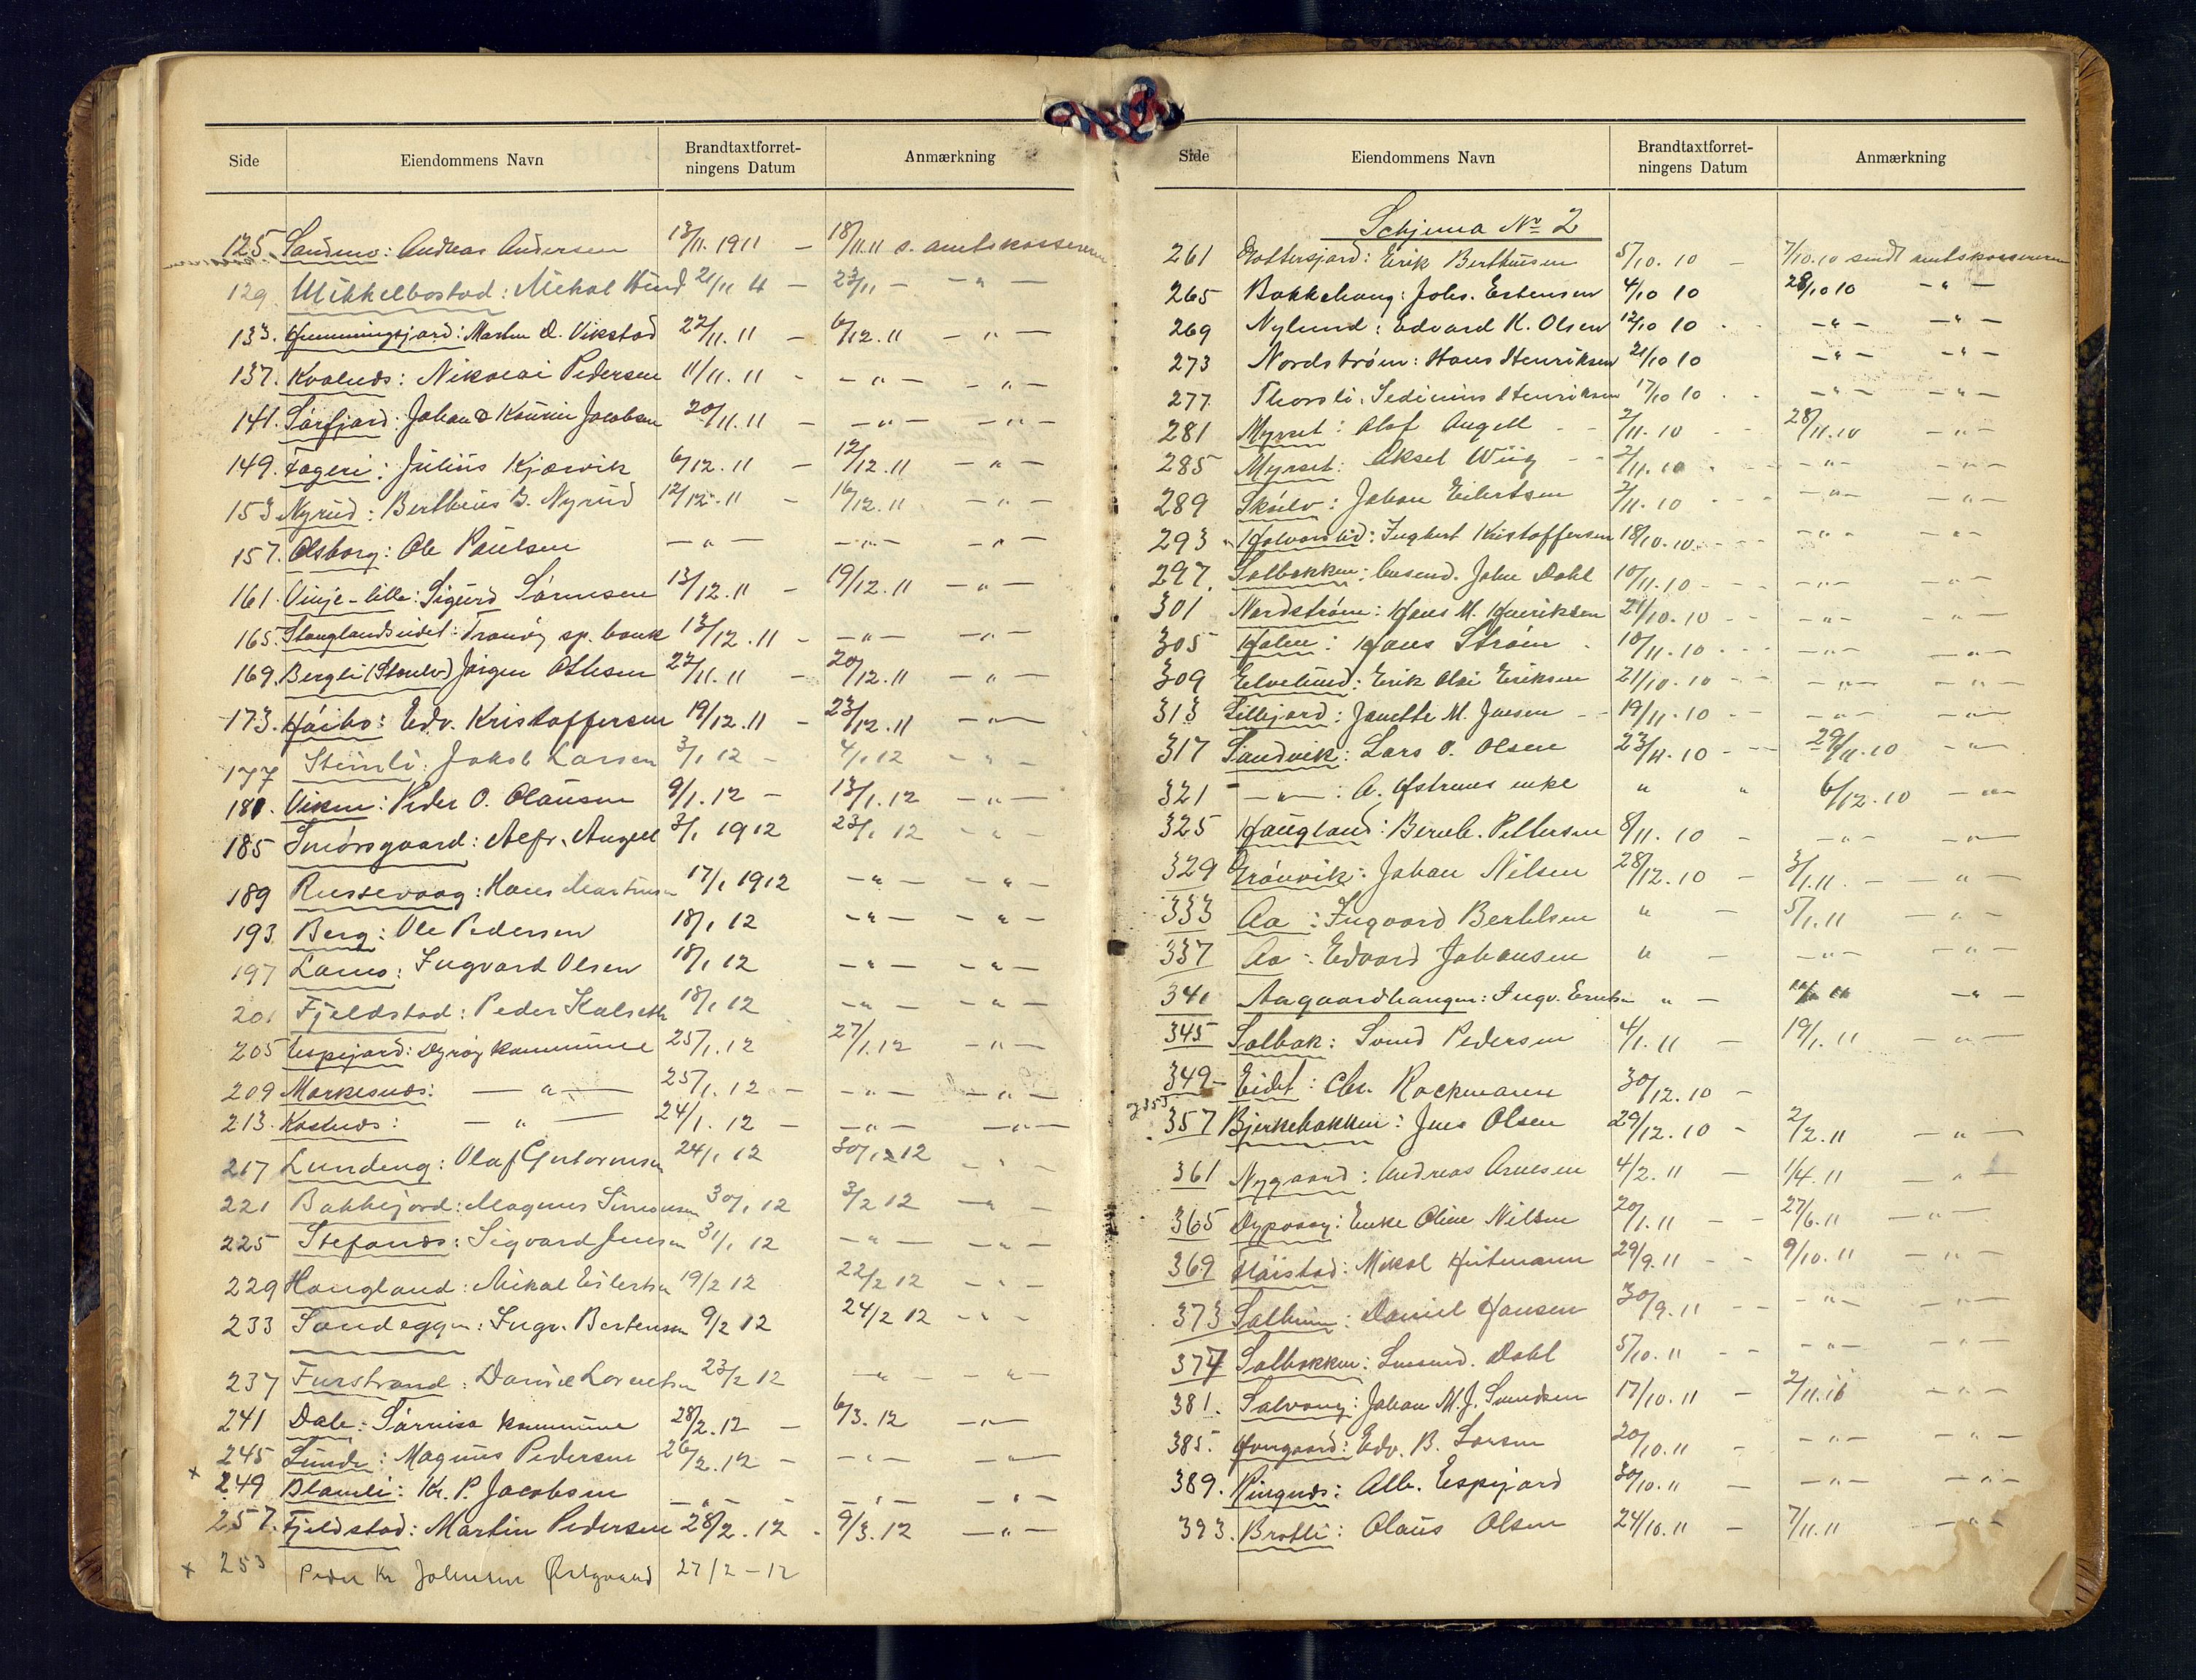 Side Eiendommens Navn Brandtaxtforret- Anmærkning
ningens Datum
125 Sandmo: Andreas Andersen 13/11. 1911 — 18/11.11 s. amtskasseren
129 Mikkelbostad: Mikal Hind 21/11 11 — 23/11 — — " —
133. Hemmingsjord: Martin D. Vikstad 22/11. 11 — 6/12. 11 — " —
137. Kvalnæs: Nikolai Pedersen 11/11. 11 - — " — — " —
141. Sørfjord: Johan & Kaurin Jacobsen 20/11. 11 - — " — — " —
149. Fageri: Julius Kjærvik 6/12. 11 — 12/12. 11 — " —
153 Nyrud: Bertheus B. Nyrud 12/12. 11 - 16/12. 11 — " —
157. Olsborg: Ole Paulsen — " — — " — — " —
161. Vinje-lille: Sigurd Sørensen 13/12. 11 - 19/12. 11 — " —
165. Stonglandseidet: Tranøy sp. bank 13/12. 11 - — " — — " —
169. Bergli Jørgen Othesen 22/11. 11 - 20/12. 11 — " —
173. Høibo: Edv. Kristoffersen 19/12. 11 — 23/12. 11 — " —
177 Steinli: Jakob Larsen 3/1 12 - 4/1 12 — " —
181. Viken: Peder O. Olausen 9/1. 12 — 13/1. 12 — " —
185 Smørsgaard: Alfr. Angell 3/1 1912 23/1 12 — " —
189 Russevaag: Hans Martinsen 17/1 1912 — " — — " —
193 Berg: Ole Pedersen 18/1 12 — " — — " —
197 Lamo: Ingvard Olsen 18/1 12 — " — — " —
201 Fjeldstad: Peder Kalseth 18/1 12 — " — — " —
205 Espejord: Dyrøy kommune 25/1. 12 27/1. 12 — " —
209 Markesnæs: — " — 25/1. 12 - — " — — " —
213. Kastnæs: — " — 24/1. 12 - — " — — " —
217 Lundeng: Olaf Guttormsen 24/1 12 30/1 12 — " —
221 Bakkejord: Magnus Simonsen 30/1 12 3/2 12 — " —
225 Stefanæs: Sigvard Jensen 31/1 12 — " — — " —
229 Haugland: Mikal Eilertsen 19/2 12 22/2 12 — " —
233 Sandeggen: Ingv. Bertensen 9/2 12 24/2 12 — " —
237 Furstrand: Daniel Lorentsen 23/2 12 — " — — " —
241 Dale: Sørreisa kommune 28/2. 12 — 6/3. 12 — " —
245 Lunde: Magnus Pedersen 26/2. 12 - — " — — " —
x 249 Blaali: Kr. P. Jacobsen — " — - — " — — " —
257. Fjeldstad: Martin Pedersen 28/2. 12 - 9/3. 12 — " —
x 253 Peder Kr Johnsen Østgaard 27/2 - 12
Side Eiendommens Navn Brandtaxtforret- Anmærkning
ningens Datum
Schjema No 2
261 Erik Berthusen 5/10. 10 — 7/10. 10 sendt amtskasseren
265 Bakkehaug: Johs. Estensen 4/10 10 28/10 10 — " —
269 Nylund: Edvard K. Olsen 12/10 10 — " — — " —
273 Nordstrøm: Hans Henriksen 21/10 10 — " — — " —
277 Thorsli: Sedinius Henriksen 17/10 10 — " — — " —
281 Myrset: Olaf Angell 2/11. 10 28/11. 10 — " —
285 Myrset: Aksel Wiig 2/11. 10 — " — — " —
289 Skøelv: Johan Eilertsen 2/11. 10 — " — — " —
293 Halvarslid: Ingbert Kristoffersen 18/10. 10 — " — — " —
297. Solbakken: John Dahl 10/11. 10 — " — — " —
301 Nordstrøm: Hans M. Henriksen 21/10. 10 — " — — " —
305 Holm: Hans Strøm 10/11. 10 — " — — " —
309 Elvelund: Erik Olai Eriksen 21/10. 10 — " — — " —
313 Lillejord: Janette M. Jensen 19/11. 10 — " — — " —
317 Sandvik: Lars O. Olsen 23/11. 10 29/11. 10 — " —
321 — " —: A. Østrems enke " " 6/12. 10 — " —
325 Haugland: Bernh. Pettersen 8/11. 10 - — " — — " —
329 Grønvik: Johan Nilsen 28/12. 10 — 3/1. 11. — " —
333 Aa: Ingvard Berthsen " — 5/1. 11 — " —
337 Aa: Edvard Johansen " — — " — — " —
341 Aagaardhaugen: Ingv. " — — " —
345 Solbak: Svend Pedersen 4/1. 11 — 19/1. 11 — " —
349- Eidet: Chr. Rackmann 30/12. 10 -
og 353
357 Bjerkebakken: Jens Olsen 29/12. 10 - 2/2. 11 — " —
361 Nygaard: Andreas Arnesen 4/2. 11 — 1/4. 11 — " —
365 Dypvaag: Enke Oline Nilsen 20/1. 11 - - 27/6. 11 — " —
369 Høistad: Mikal Heitmann 29/9. 11 - - 9/10. 11 — " —
373 Solheim: Daniel Hansen 30/9. 11 - - — " — — " —
377 Solbakken: Dahl 5/10. 11 - - — " — — " —
381. Solvang: Johan M. J. Svendsen 17/10. 11 — 2/11. 11 — " —
385. Øvergaard: Edv. B. Larsen 20/10. 11 - — " — — " —
389. Ringnæs: Alb. Espejord 30/10. 11 — — " — — " —
393. Brotli: Olaus Olsen 24/10. 11 — 7/11. 11 — " —